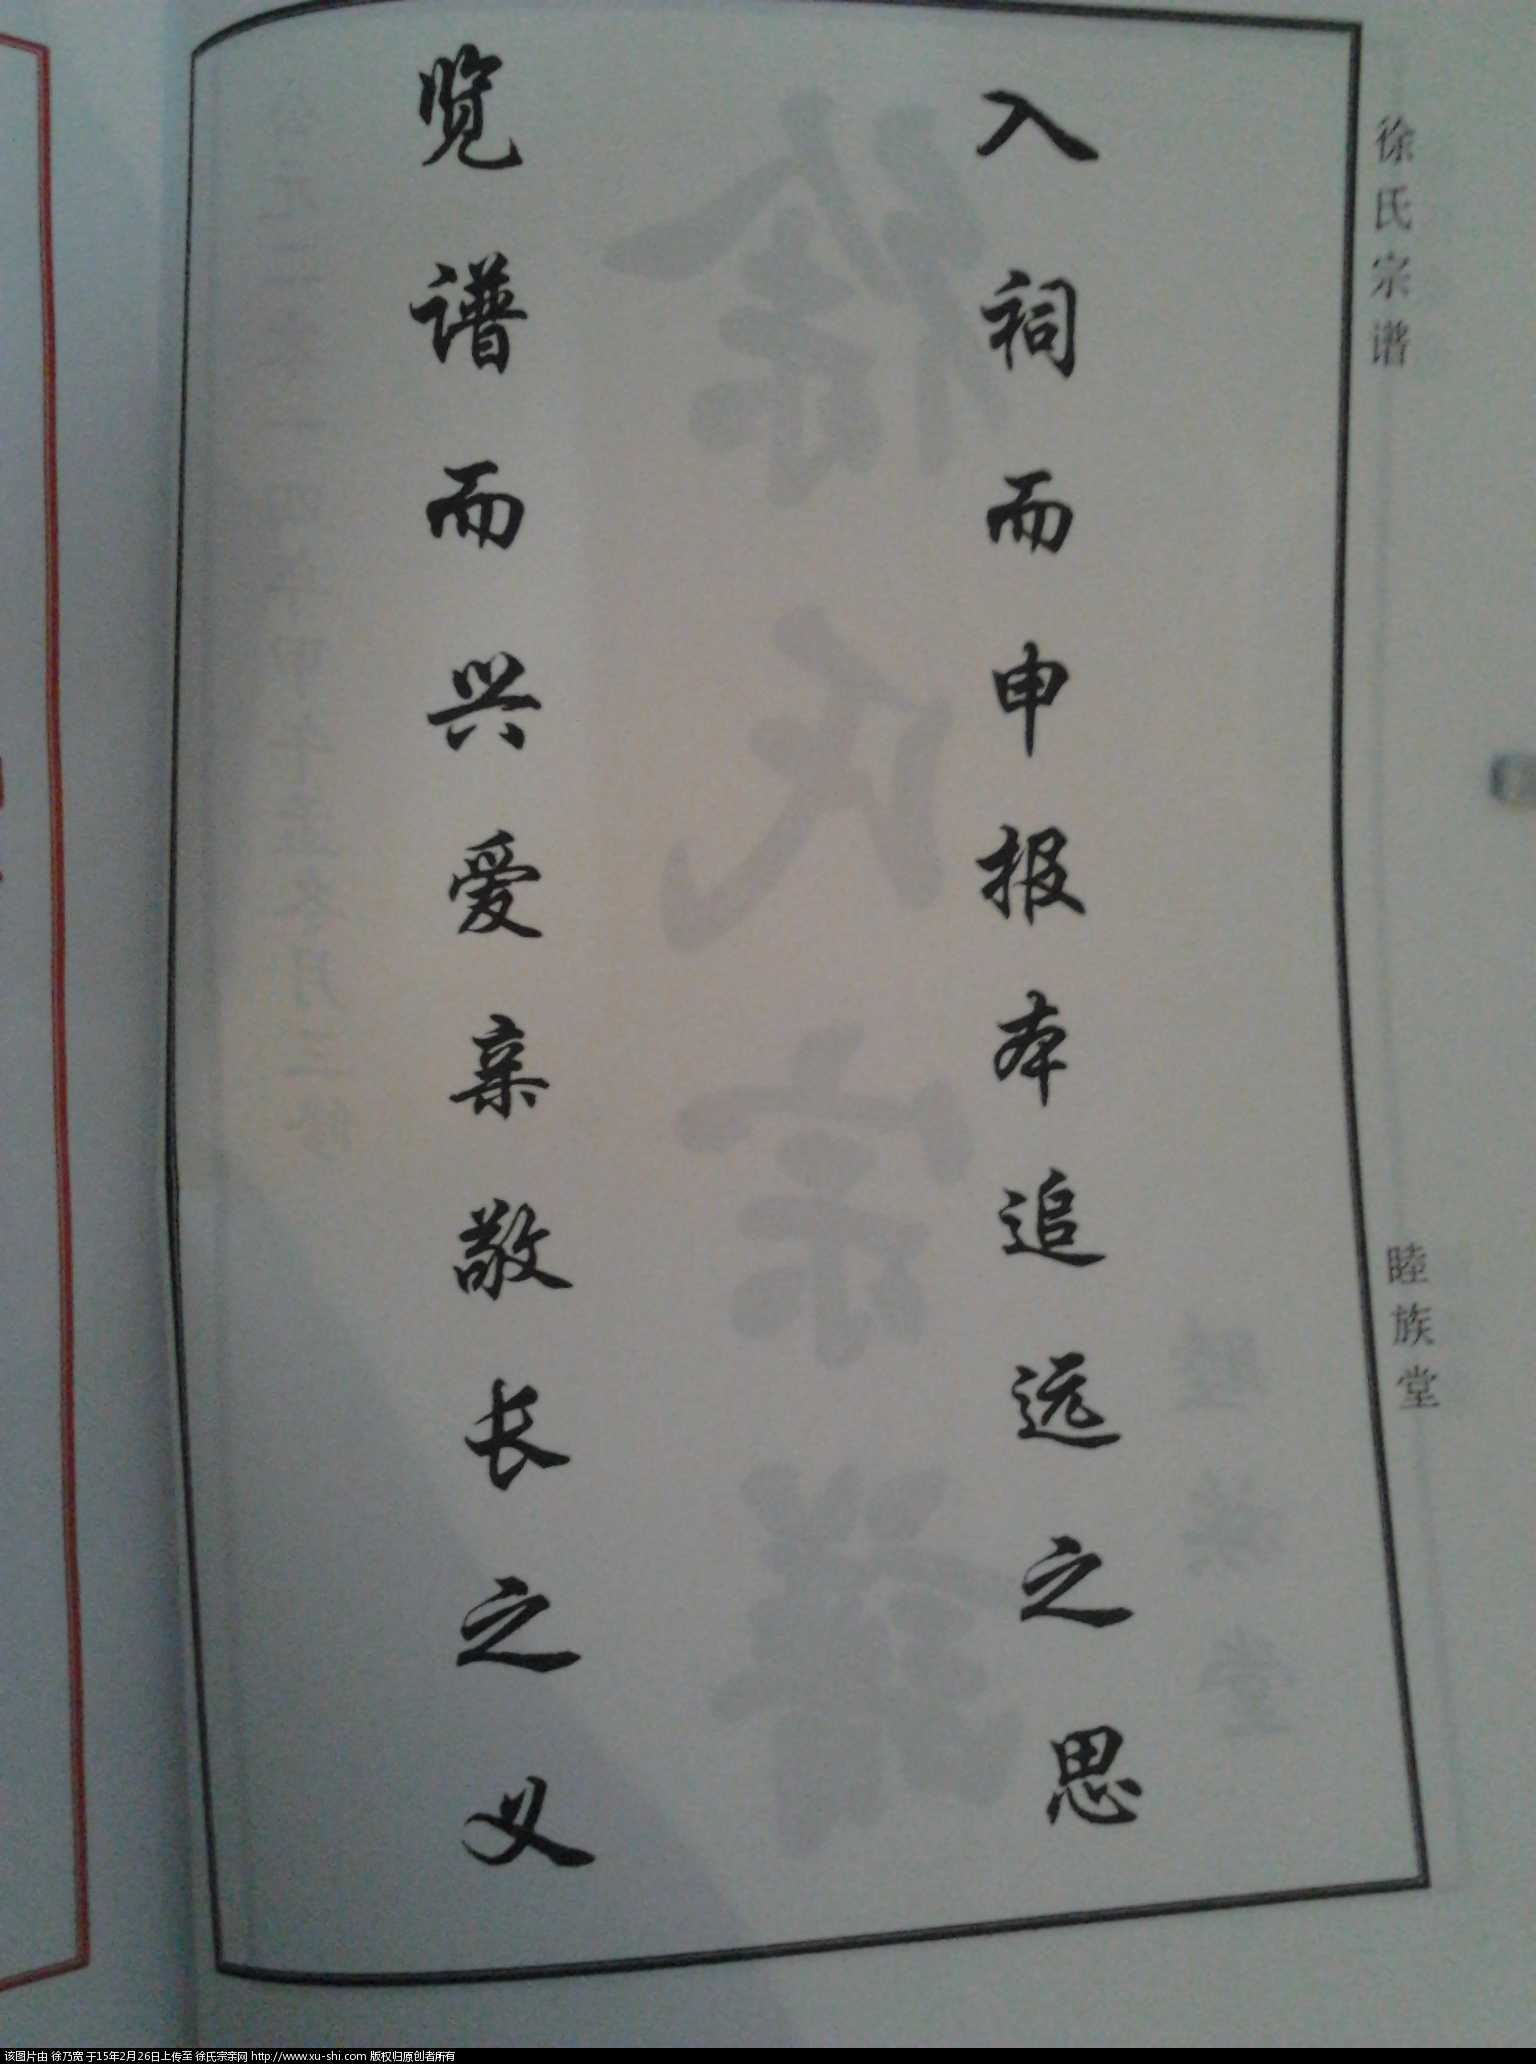 徐氏宗谱
睦族堂
入祠而申报本追远之思
览谱而兴爱亲敬长之义
该图片由 徐乃宽 于15年2月26日上传至 徐氏宗亲网 http://www.xu-shi.com 版权归原创者所有